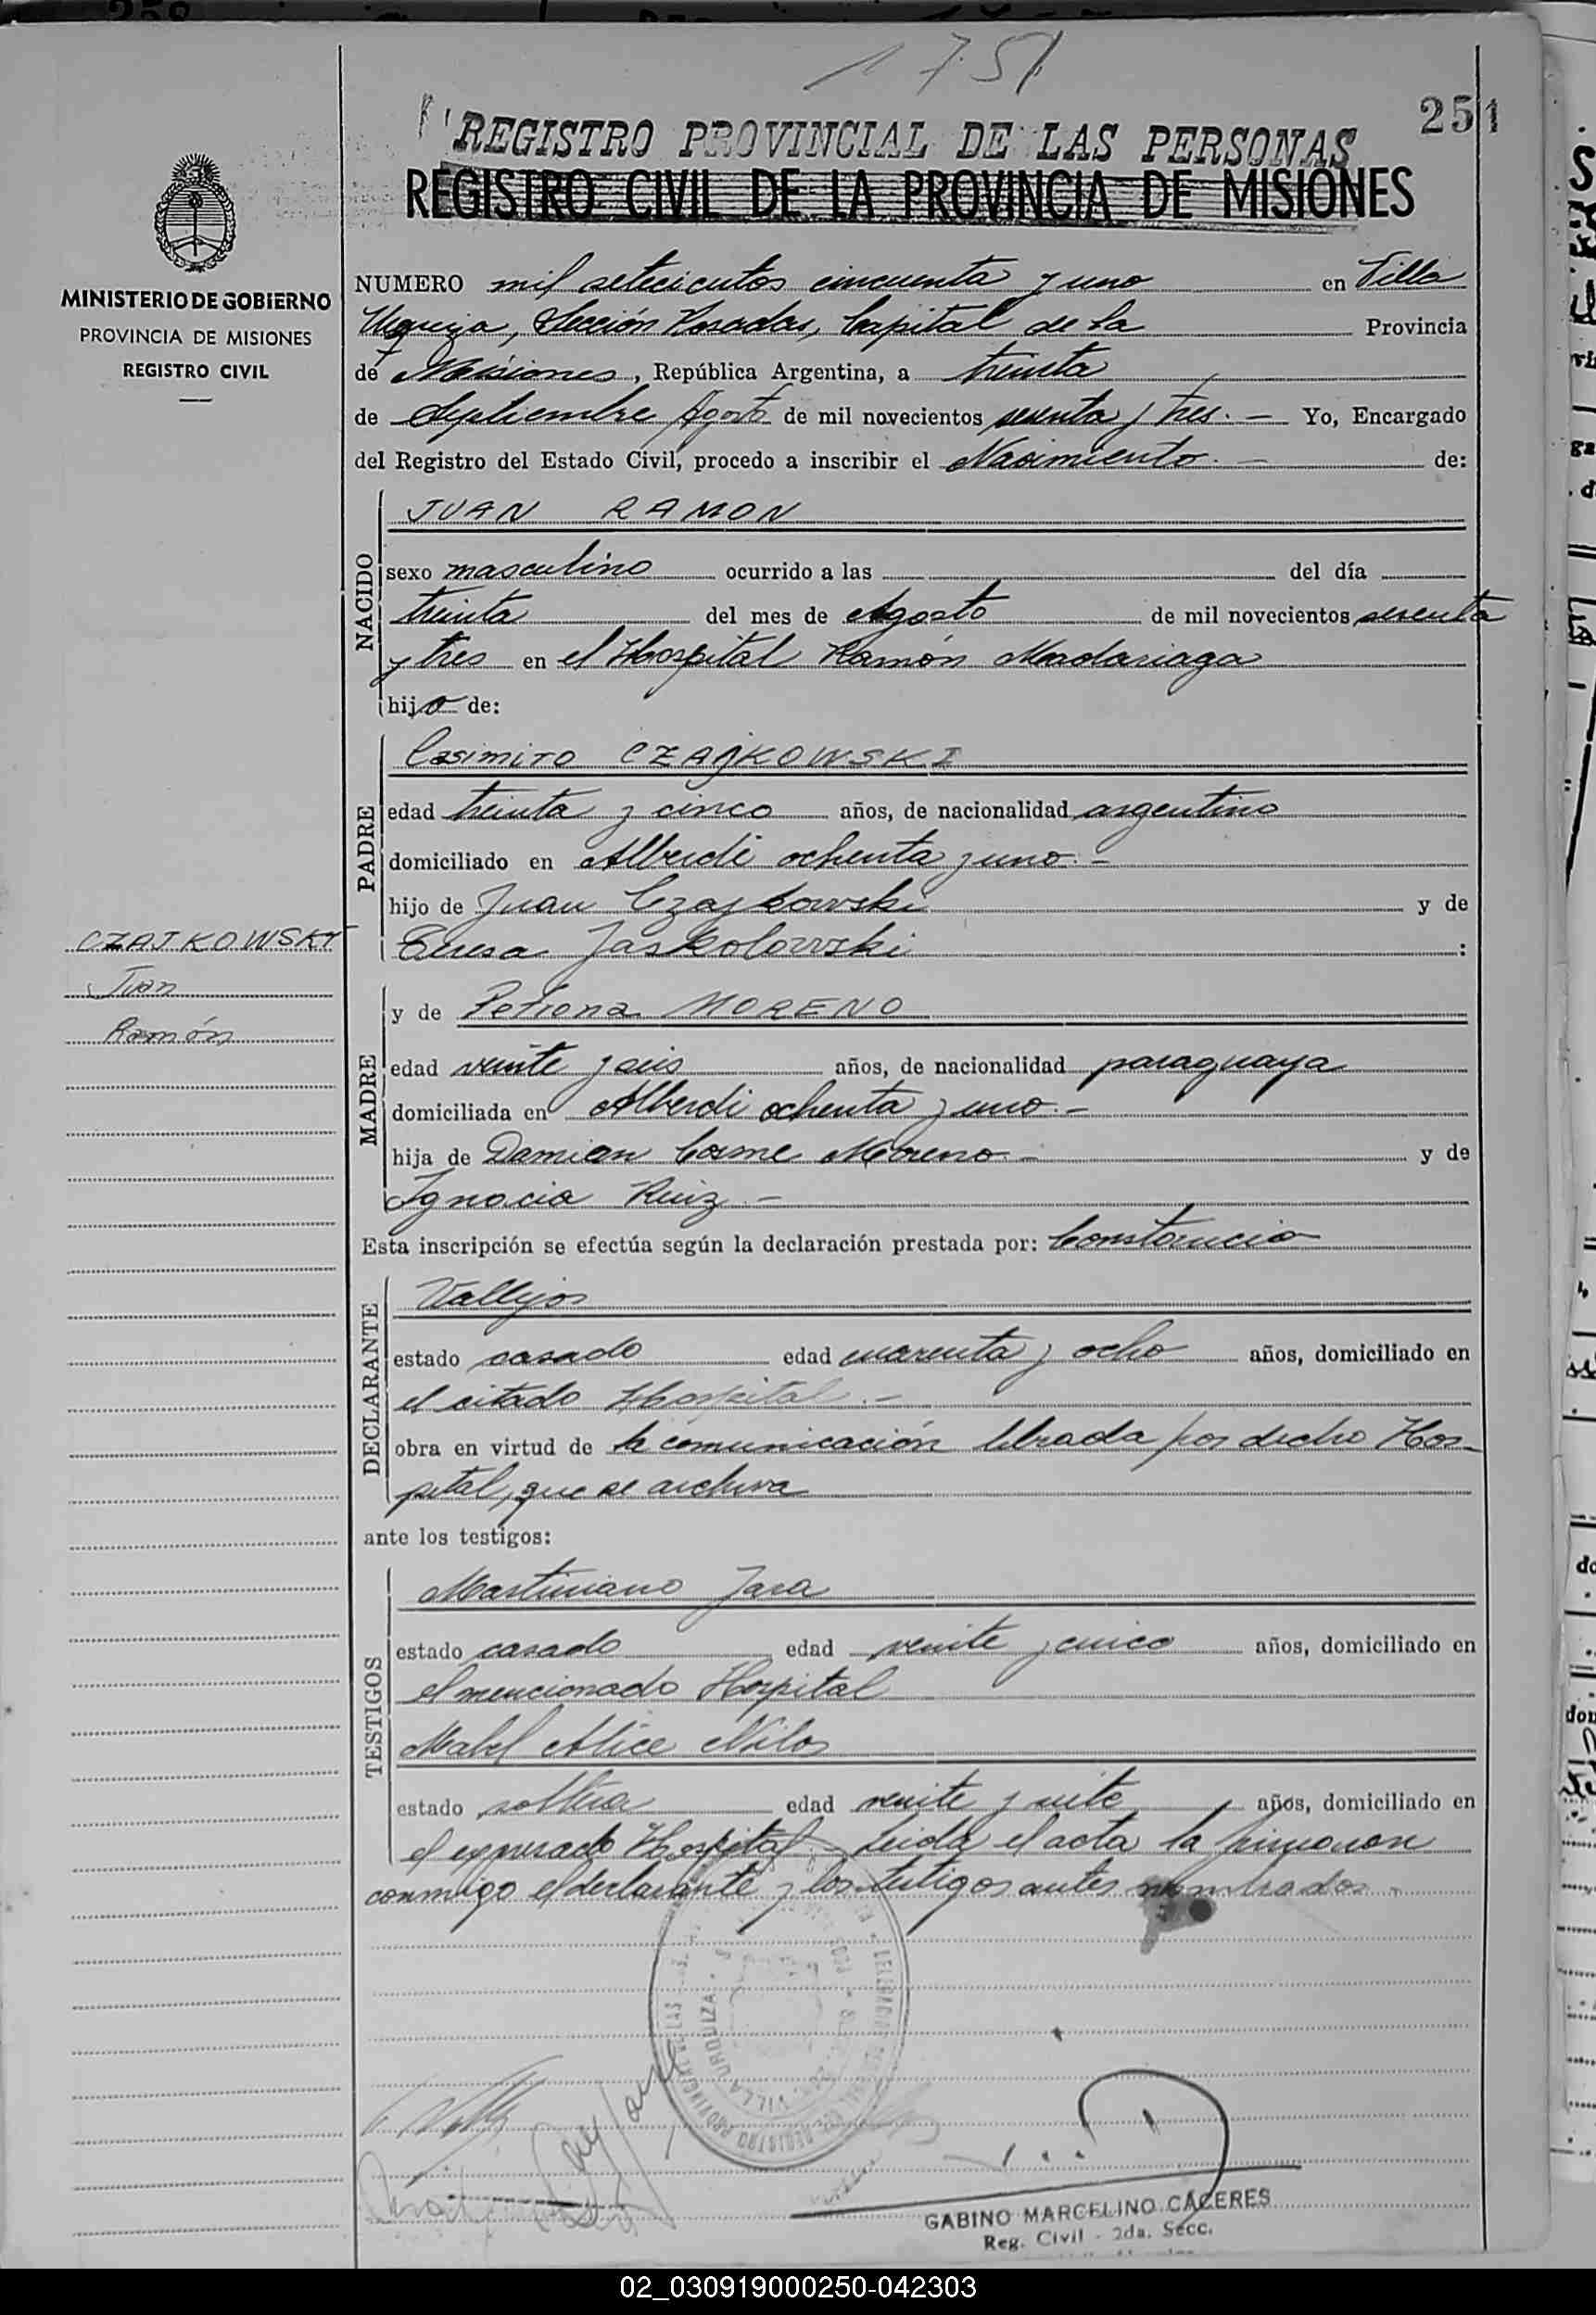 1751
251
REGISTRO PROVINCIAL DE LAS PERSONAS
REGISTRO CIVIL DE LA PROVINCIA DE MISIONES
MINISTERIO DE GOBIERNO
PROVINCIA DE MISIONES
REGISTRO CIVIL
NUMERO mil setecientos cincuenta y uno en Villa
Urquiza, Sección Posadas, Capital de la Provincia
de Misiones, República Argentina, a treinta
de Septiembre Agosto de mil novecientos sesenta y tres. — Yo, Encargado
del Registro del Estado Civil, procedo a inscribir el Nacimiento. — de:
NACIDO
JUAN RAMON
sexo masculino ocurrido a las del día
treinta del mes de Agosto de mil novecientos sesenta
y tres en el Hospital Ramón Madariaga
hijo de:
PADRE
Casimiro CZAJKOWSKI
edad treinta y cinco años, de nacionalidad argentino
domiciliado en Alberdi ochenta y uno. —
hijo de Juan Czajkowski y de
Teresa Jaskolowski :
CZAJKOWSKY
Juan
Ramón
MADRE
y de Petrona MORENO
edad veinte y seis años, de nacionalidad paraguaya
domiciliada en Alberdi ochenta y uno. —
hija de Damian Cosme Moreno — y de
Ignacia Ruiz. —
Esta inscripción se efectúa según la declaración prestada por: Constancio
DECLARANTE
Vallejos
estado casado edad cuarenta y ocho años, domiciliado en
el citado Hospital. —
obra en virtud de la comunicación librada por dicho Hos-
pital, que se archiva
ante los testigos:
TESTIGOS
Martiniano Jara
estado casado edad veinte y cinco años, domiciliado en
el mencionado Hospital
Mabel Alice Nilos
estado soltera edad veinte y siete años, domiciliado en
el expresado Hospital. Leida el acta la firmaron
conmigo el declarante y los testigos antes nombrados. -
VILLA URQUIZA
REGISTRO PROVINCIAL DE LAS
GABINO MARCELINO CACERES
Reg. Civil - 2da. Secc.
02_030919000250-042303